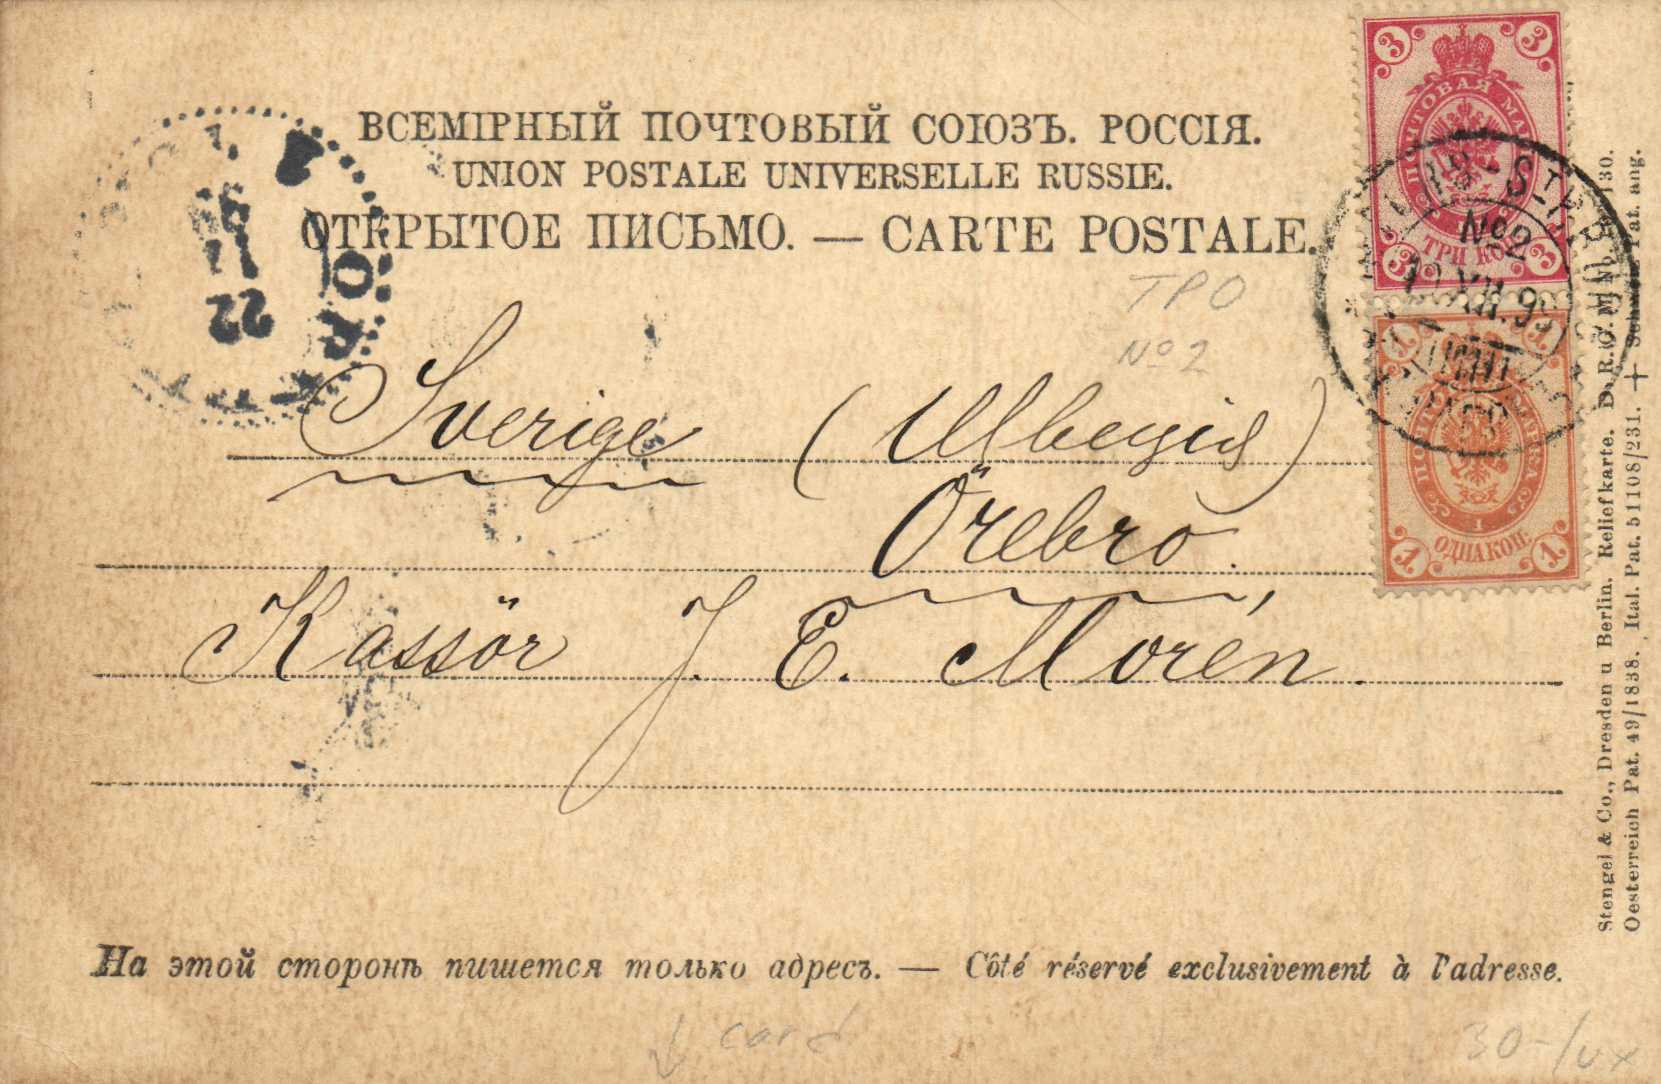 ВСЕМІРНЫЙ ПОЧТОВЫЙ СОЮЗЪ. РОССІЯ.
UNION POSTALE UNIVERSELLE RUSSIE.
ОТКРЫТОЕ ПИСЬМО. — CARTE POSTALE.
3 3
ПОЧТОВАЯ МАРКА
ТРИ КОП.
3 3
No 2
XII.99
22
ÖR
TPO
No 2
1 1
ПОЧТОВАЯ МАРКА
1
ОДНА КОП.
1 1
Sverige
Örebro.
Kassör J. E. Morén.
На этой сторонѣ пишется только адресъ. — Côté réservé exclusivement à l'adresse.
card
30-/ux
Stengel & Co., Dresden u Berlin. Reliefkarte. D. R. G. M. No. 130.
Oesterreich Pat. 49/1838. Ital. Pat. 51108/231. + Schweiz Pat. ang.